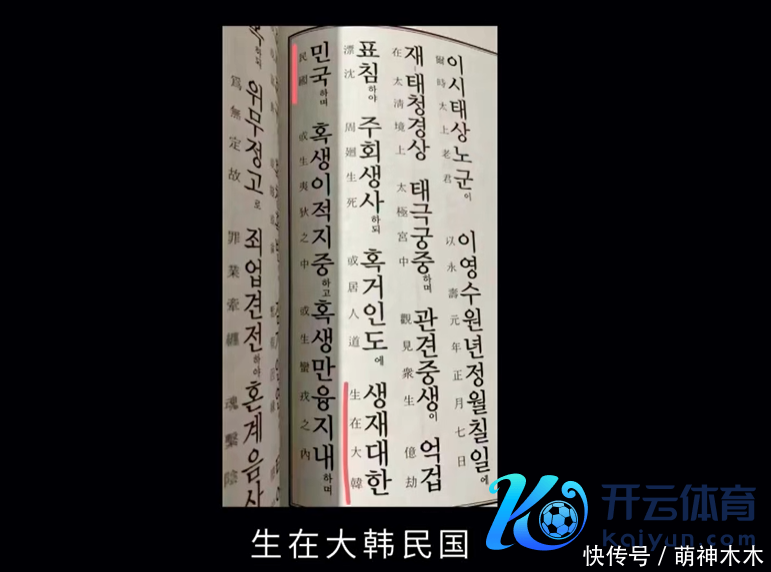 이시태상노군이 이영수원년정월칠일에
爾時太上老君 以永壽元年正月七日
재태청경상 태극궁중하며 관견중생이 억겁
在太淸境上 太極宮中 觀見衆生 億劫
표침하야 주회생사하되 혹거인도에 생재대한
漂沈 周廻生死 或居人道 生在大韓
민국하며 혹생이적지중하고 혹생만융지내하며
民國 或生夷狄之中 或生蠻戎之內
위무정고로 죄업견전하야 혼계음
爲無定故 罪業牽纏 魂繫陰
生在大韩民国
开云体育
Kaiyun.com
快传号 / 萌神木木